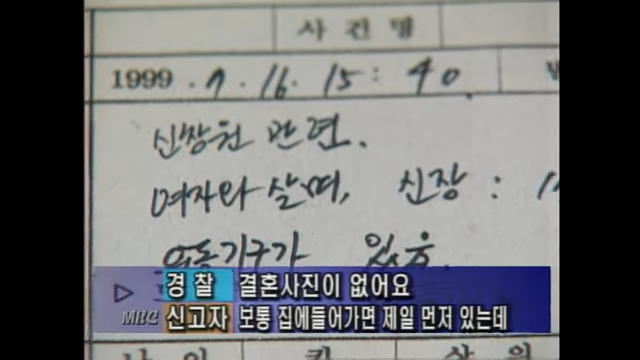 사건명
1999.7.16. 15:40.
신창원 관련.
여자와 살며, 신장 : 1
운동기구가 있음.
경찰 결혼사진이 없어요
MBC 신고자 보통 집에들어가면 제일 먼저 있는데